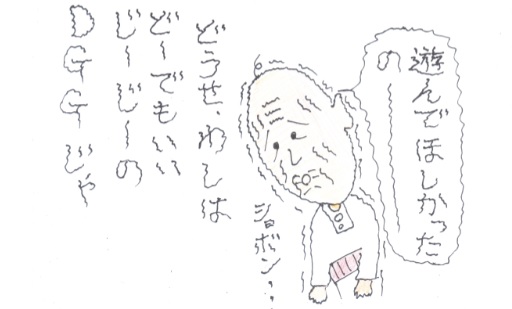 遊んでほしかった
の〜
ショボン…
どうせ、わしは
ど〜でもいい
じ〜じ〜の
DGGじゃ